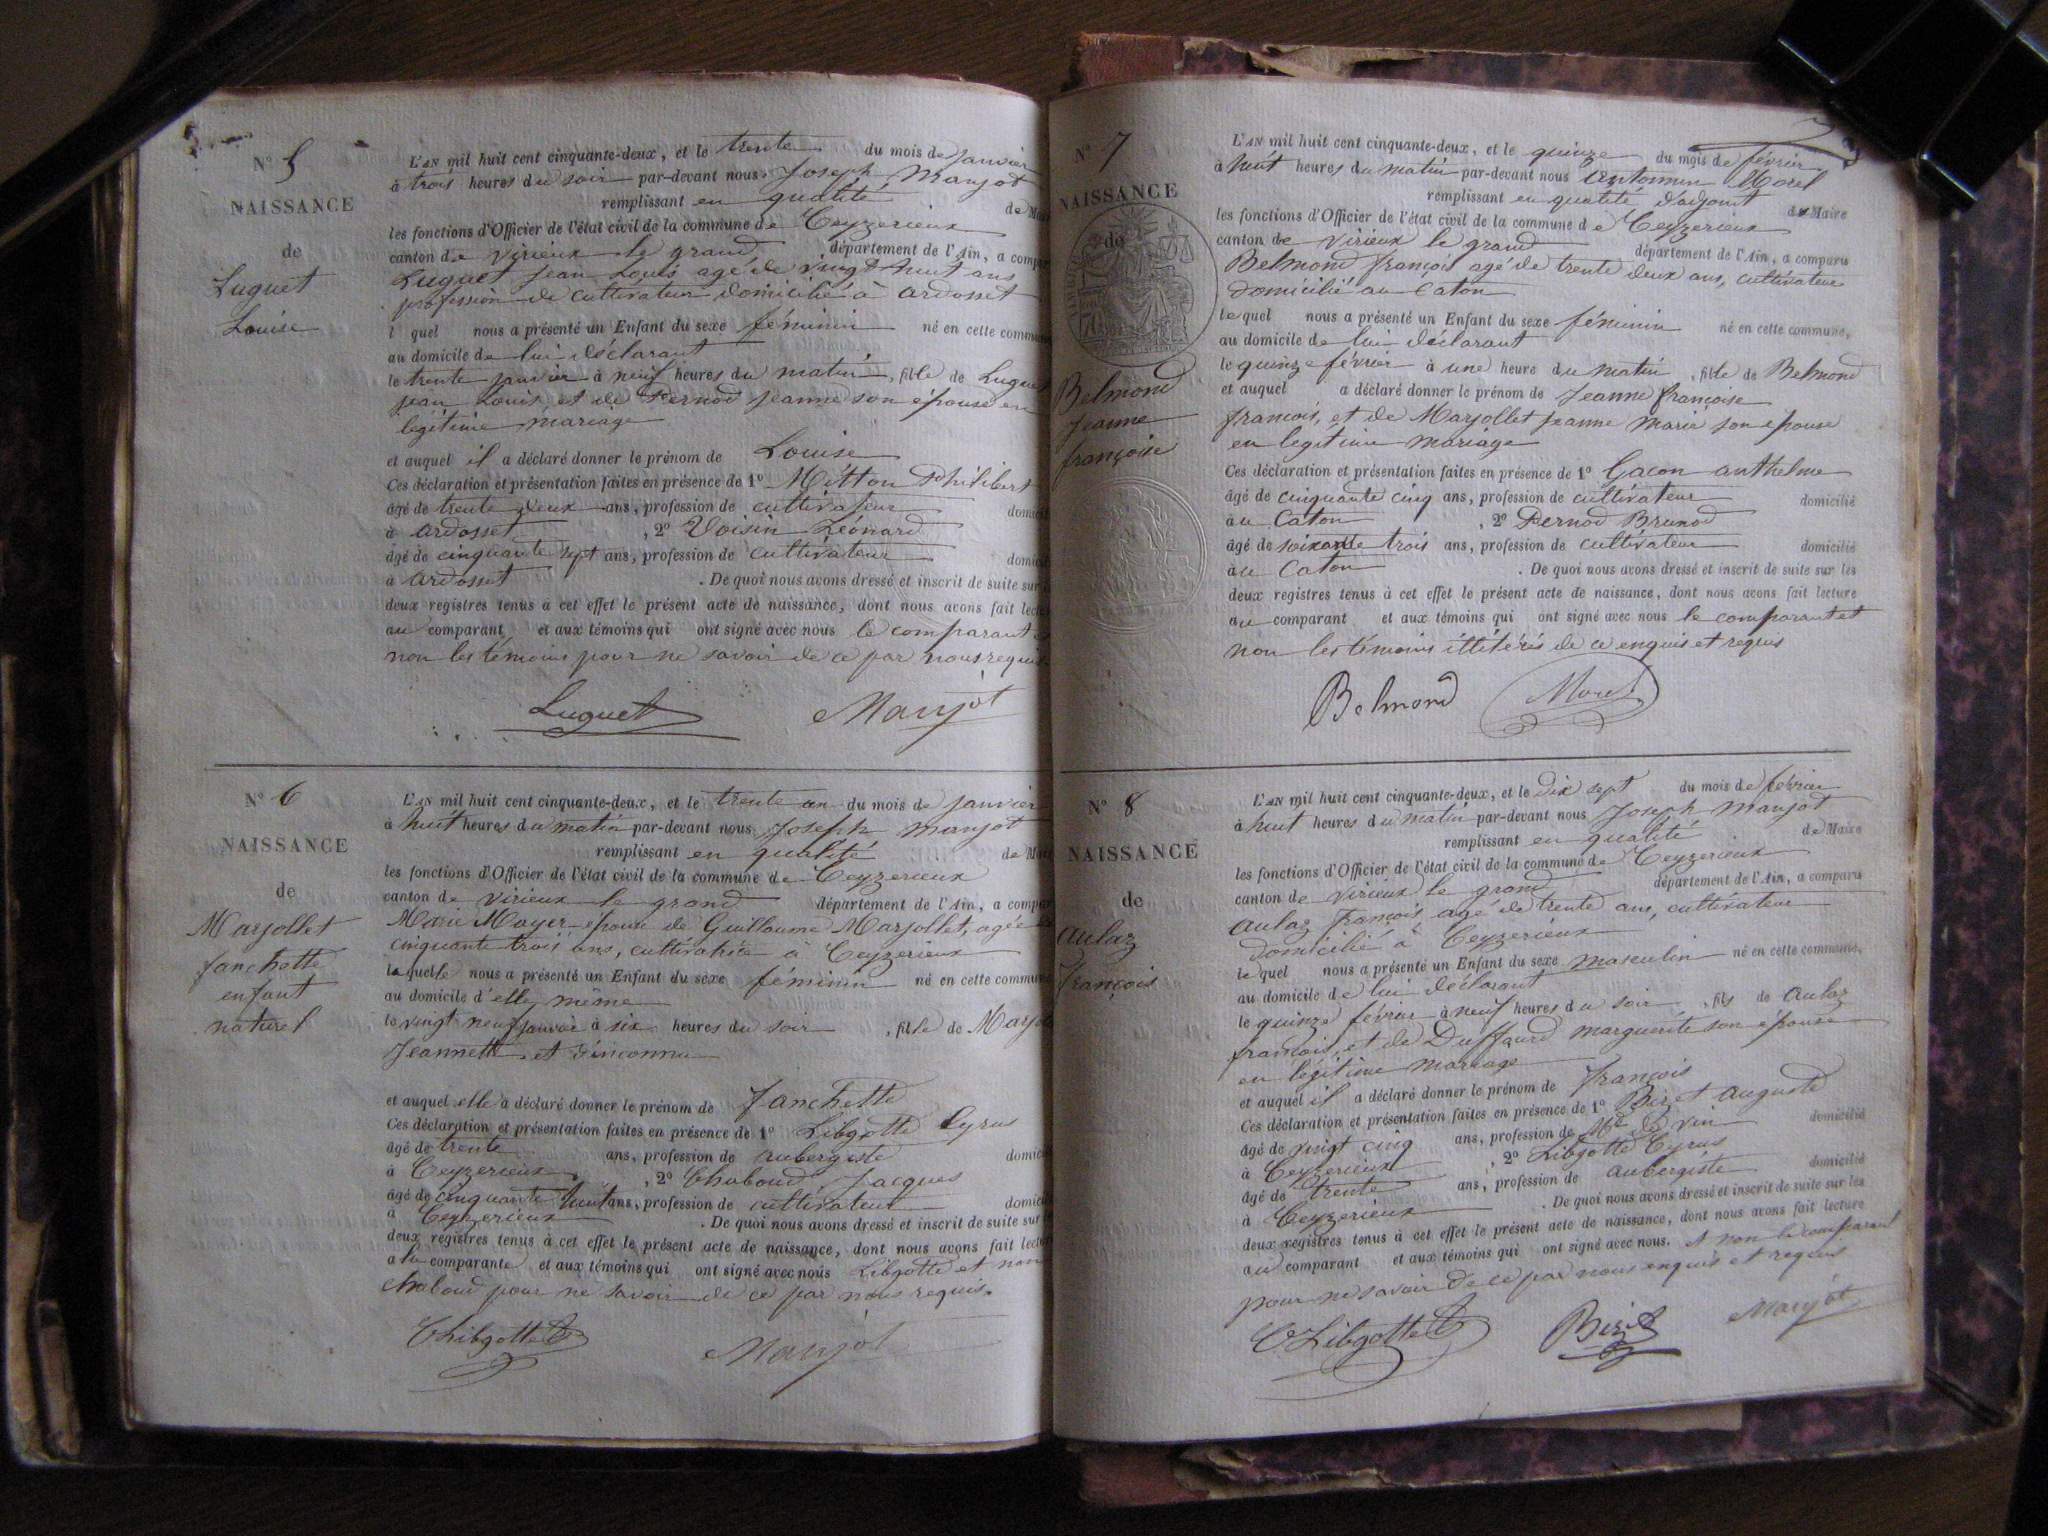 N° 5
NAISSANCE
de
Luguet
Louise
L'AN mil huit cent cinquante-deux, et le trente du mois de janvier
à trois heures du soir par-devant nous Joseph Manjot
remplissant en qualité de Maire
les fonctions d'Officier de l'état civil de la commune de Ceyzerieux
canton de virieux le grand département de l'Ain, a compar
Luguet Jean Louis agé de vingt huit ans
profession de cultivateur domicilié à ardosset
l quel nous a présenté un Enfant du sexe féminin né en cette commune
au domicile de lui déclarant
le trente janvier à neuf heures du matin, fille de Luguet
jean Louis et de Pernod jeanne son épouse en
legitime mariage
et auquel il a déclaré donner le prénom de Louise
Ces déclaration et présentation faites en présence de 1° Mitton Philibert
âgé de trente deux ans, profession de cultivateur domicil
à ardosset, 2° Voisin Léonard
âgé de cinquante sept ans, profession de cultivateur domicil
à ardosset. De quoi nous avons dressé et inscrit de suite sur
deux registres tenus à cet effet le présent acte de naissance, dont nous avons fait lecture
au comparant et aux témoins qui ont signé avec nous le comparant et
non les témoins pour ne savoir de ce par nous requis
Luguet Manjot
N° 6
NAISSANCE
de
Marjollet
fanchette
enfant
naturel
L'AN mil huit cent cinquante-deux, et le trente un du mois de janvier
à huit heures du matin par-devant nous Joseph manjot
remplissant en qualité de Maire
les fonctions d'Officier de l'état civil de la commune de Ceyzerieux
canton de virieux le grand département de l'Ain, a compar
Marie Mayer épouse de Guillaume Marjollet, agée de
cinquante trois ans, cultivatrice à Ceyzerieux
laquelle nous a présenté un Enfant du sexe féminin né en cette commune
au domicile d'elle même
le vingt neuf janvier à six heures du soir, fille de Marjollet
Jeannette et d'inconnu
et auquel elle a déclaré donner le prénom de fanchette
Ces déclaration et présentation faites en présence de 1° Libgotte Cyrus
âgé de trente ans, profession de aubergiste domicil
à Ceyzerieux, 2° Chaboud Jacques
âgé de cinquante huit ans, profession de cultivateur domicil
à Ceyzerieux. De quoi nous avons dressé et inscrit de suite sur
deux registres tenus à cet effet le présent acte de naissance, dont nous avons fait lecture
à la comparante et aux témoins qui ont signé avec nous Libgotte et non
chaboud pour ne savoir de ce par nous requis.
CLibgotte Manjot
N° 7
NAISSANCE
de
Belmond
Jeanne
françoise
L'AN mil huit cent cinquante-deux, et le quinze du mois de février
à huit heures du matin par-devant nous antonmin Morel
remplissant en qualité d'adjoint du Maire
les fonctions d'Officier de l'état civil de la commune de Ceyzerieux
canton de virieux le grand département de l'Ain, a comparu
Belmond françois agé de trente deux ans, cultivateur
domicilié au Caton
lequel nous a présenté un Enfant du sexe féminin né en cette commune,
au domicile de lui déclarant
le quinze février à une heure du matin, fille de Belmond
et auquel a déclaré donner le prénom de Jeanne françoise
françois, et de Marjollet jeanne marie son épouse
en legitime mariage
Ces déclaration et présentation faites en présence de 1° Gacon anthelme
âgé de cinquante cinq ans, profession de cultivateur domicilié
au Caton, 2° Pernod Brunod
âgé de soixante trois ans, profession de cultivateur domicilié
au Caton. De quoi nous avons dressé et inscrit de suite sur les
deux registres tenus à cet effet le présent acte de naissance, dont nous avons fait lecture
au comparant et aux témoins qui ont signé avec nous le comparant et
non les témoins illitérés de ce enquis et requis
Belmond Morel
N° 8
NAISSANCE
de
Aulaz
François
L'AN mil huit cent cinquante-deux, et le dix sept du mois de fevrier
à huit heures du matin par-devant nous Joseph Manjot
remplissant en qualité de Maire
les fonctions d'Officier de l'état civil de la commune de Ceyzerieux
canton de virieux le grand département de l'Ain, a comparu
aulaz françois, agé de trente ans, cultivateur
domicilié à Ceyzerieux
lequel nous a présenté un Enfant du sexe masculin né en cette commune,
au domicile de lui déclarant
le quinze février à neuf heures du soir, fils de aulaz
francois, et de Duffaurd marguerite son épouse
en légitime mariage
et auquel il a déclaré donner le prénom de françois
Ces déclaration et présentation faites en présence de 1° Bizet auguste
âgé de vingt cinq ans, profession de Md de vin domicilié
à Ceyzerieux, 2° Libgotte Cyrus
âgé de trente ans, profession de aubergiste domicilié
à Ceyzerieux. De quoi nous avons dressé et inscrit de suite sur les
deux registres tenus à cet effet le présent acte de naissance, dont nous avons fait lecture
au comparant et aux témoins qui ont signé avec nous. et non le comparant
pour ne savoir de ce par nous enquis et requis
CLibgotte Bizet Manjot